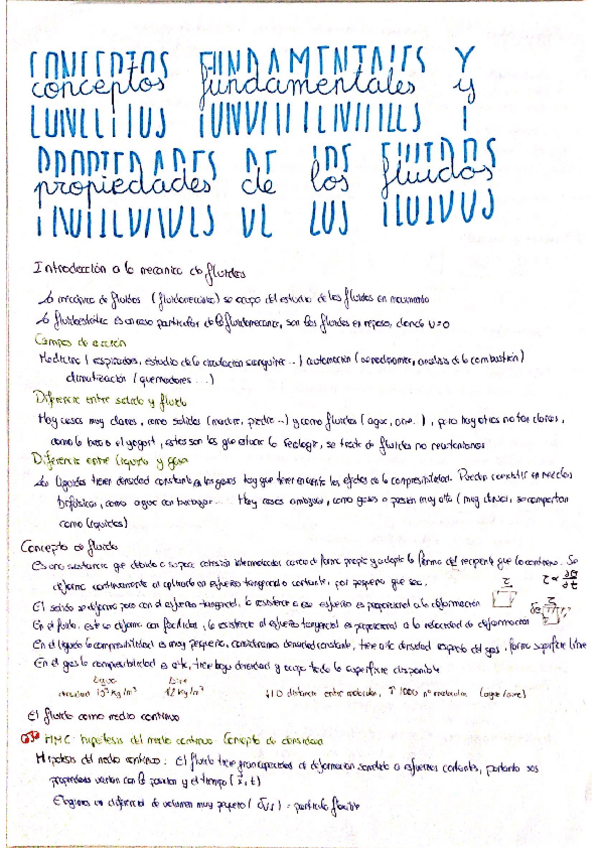 conceptos fundamentales y
propiedades de los fluidos
Introducción a la mecánica de fluidos
La mecánica de fluidos (fluidomecánica) se ocupa del estudio de los fluidos en movimiento
La fluidoestática es un caso particular de la fluidomecánica, son los fluidos en reposo, donde v=0
Campos de acción
Medicina (respiradores, estudio de la circulación sanguínea...) automoción (aerodinámica, análisis de la combustión)
climatización (quemadores ...)
Diferencia entre sólido y fluido
Hay casos muy claros, como sólidos (madera, piedra ...) y como fluidos (agua, aire...), pero hay otros no tan claros,
como la o el yogurt, estos son los que estudia la reología, se trata de fluidos no newtonianos
Diferencia entre líquido y gas
Los líquidos tienen densidad constante, en los gases hay que tener en cuenta los efectos de la compresibilidad. Pueden coexistir en mezclas
bifásicas, como agua con burbujas... Hay casos ambiguos, como gases a presión muy alta (muy densos, se comportan
como líquidos)
Concepto de fluido
Es una sustancia que debido a su poca cohesión intermolecular carece de forma propia y adopta la forma del recipiente que lo contiene. Se
deforma continuamente al aplicarle un esfuerzo tangencial o cortante, por pequeño que sea.
El sólido se deforma poco con el esfuerzo tangencial, la resistencia a ese esfuerzo es proporcional a la deformación
En el fluido, este se deforma con facilidad, la resistencia al esfuerzo tangencial es proporcional a la velocidad de deformación
En el líquido la compresibilidad es muy pequeña, consideramos densidad constante, tiene alta densidad respecto del gas, forma superficie libre
En el gas la compresibilidad es alta, tiene baja densidad y ocupa toda la superficie disponible
Agua Aire
10³ kg/m³ 1,2 kg/m³ ↓10 distancia entre moléculas, ↑1000 nº moléculas (agua/aire)
El fluido como medio continuo
HMC: hipótesis del medio continuo. Concepto de densidad
Hipótesis del medio continuo: El fluido tiene gran capacidad de deformación sometido a esfuerzos cortantes, por tanto sus
propiedades varían con la posición y el tiempo (x, t)
Elegimos un diferencial de volumen muy pequeño = partícula fluida